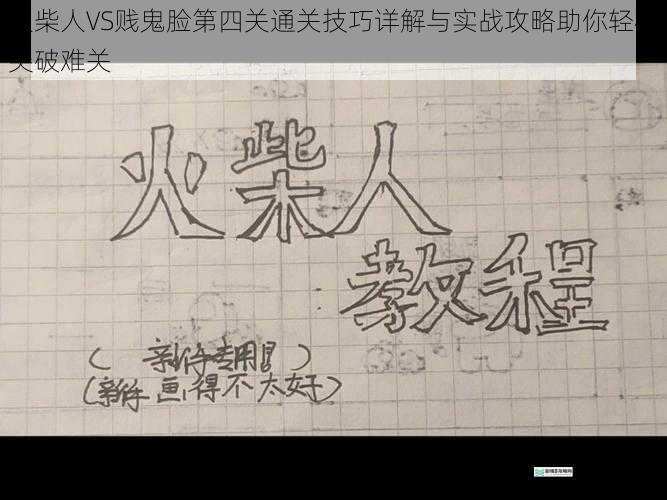 柴人VS贱鬼脸第四关通关技巧详解与实战攻略助你轻
突破难关
火柴人
教程
(新作专用!)
(新作画得不太好)